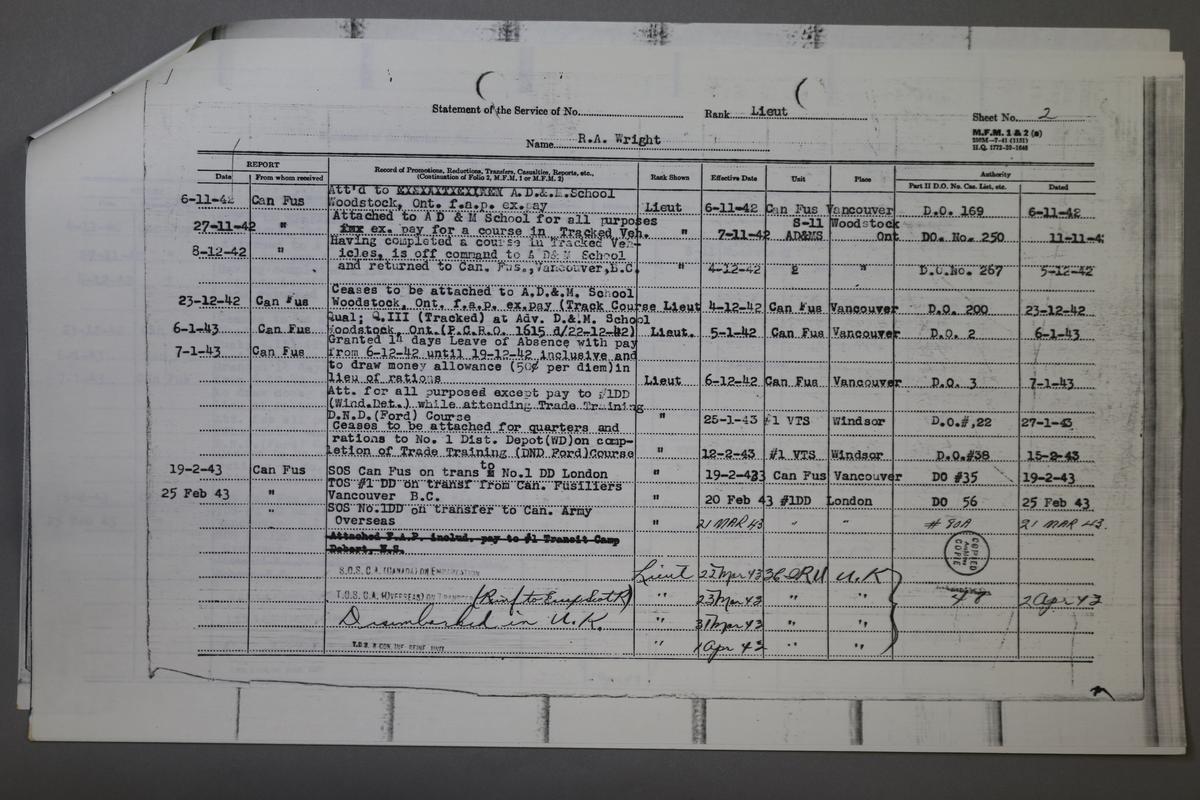 Statement of the Service of No. Rank Lieut
Sheet No. 2
Name R.A. Wright
M.F.M. 1 & 2 (a)
H.Q. 1772-39-1648
REPORT Record of Promotions, Reductions, Transfers, Casualties, Reports, etc., Rank Shown Effective Date Unit Place Authority
Date From whom received (Continuation of Folio 2, M.F.M. 1 or M.F.M. 2) Part II D.O. No. Cas. List, etc. Dated
Att'd to A.D.&.M.School
6-11-42 Can Fus Woodstock, Ont. f.a.p. ex.pay Lieut 6-11-42 Can Fus Vancouver D.O. 169 6-11-42
Attached to A D & M School for all purposes S-11 Woodstock
27-11-42 " ex. pay for a course in Tracked Veh. " 7-11-42 AD&MS Ont DO. No. 250 11-11-4
Having completed a course in Tracked Veh-
8-12-42 " icles, is off command to A D& M School
and returned to Can. Fus.,Vancouver,B.C. " 4-12-42 " D.O.No. 267 5-12-42
Ceases to be attached to A.D.&.M. School
23-12-42 Can Fus Woodstock, Ont. f.a.p. ex.pay (Track Course Lieut 4-12-42 Can Fus Vancouver D.O. 200 23-12-42
Qual; Q.III (Tracked) at Adv. D.&.M. School
6-1-43 Can Fus Woodstock, Ont.(P.C.R.O. 1615 d/22-12-42) Lieut. 5-1-42 Can Fus Vancouver D.O. 2 6-1-43
Granted 14 days Leave of Absence with pay
7-1-43 Can Fus from 6-12-42 until 19-12-42 inclusive and
to draw money allowance (50¢ per diem)in
lieu of rations Lieut 6-12-42 Can Fus Vancouver D.O. 3 7-1-43
Att. for all purposes except pay to #1DD
(Wind.Det.) while attending Trade Training
D.N.D.(Ford) Course " 25-1-43 #1 VTS Windsor D.O.#,22 27-1-43
Ceases to be attached for quarters and
rations to No. 1 Dist. Depot(WD)on comp-
letion of Trade Training (DND Ford)Course " 12-2-43 #1 VTS Windsor D.O.#38 15-2-43
to
19-2-43 Can Fus SOS Can Fus on trans No.1 DD London " 19-2-43 Can Fus Vancouver DO #35 19-2-43
TOS #1 DD on transf from Can. Fusiliers
25 Feb 43 " Vancouver B.C. " 20 Feb 43 #1DD London DO 56 25 Feb 43
" SOS No.1DD on transfer to Can. Army
Overseas " 21 MAR 43 " " # 90A 21 MAR 43.
Attached F.A.P. includ. pay to #1 Transit Camp
Debert, N.S.
COPIED
COPIÉ
S.O.S. C.A. (CANADA) ON EMBARKATION Lieut 22 Mar 43 3CIRU U.K
T.O.S. C.A. (OVERSEAS) ON TRANSFER " 23 Mar 43 " " 48 2 Apr 43
Disembarked in U.K. " 31 Mar 43 " "
" 1 Apr 43 " "